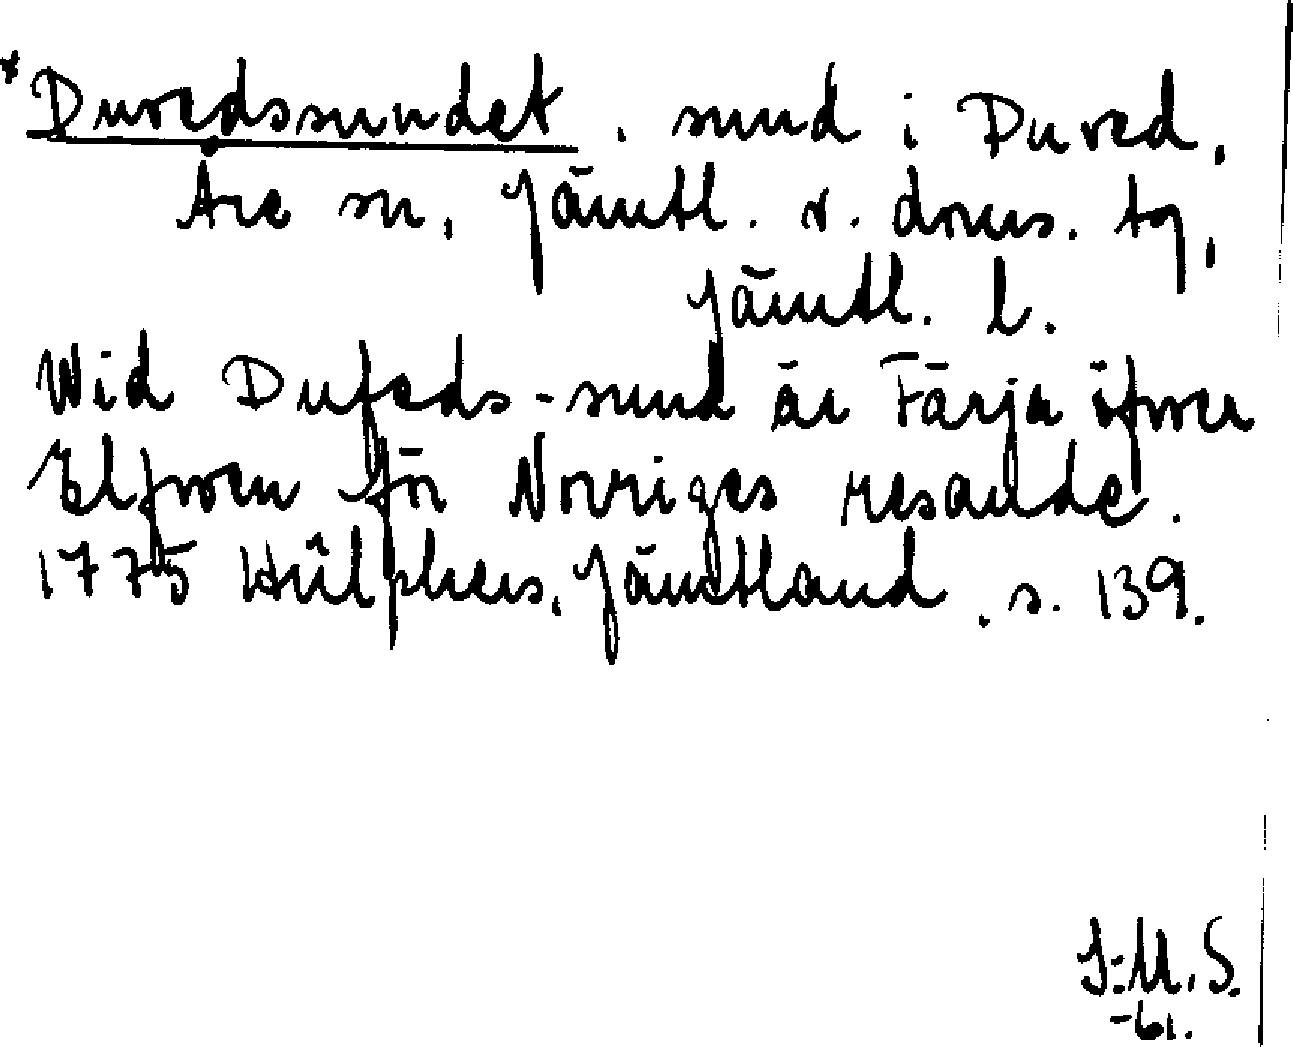 *Duvedssundet, sund i Duved,
Åre sn, Jämtl. v. doms. tg,
Jämtl. l.
Wid Dufeds-sund är Färja öfwer
Elfwen för Norriges resande.
1775 Hülphers, Jämtland, s. 139.
J:M.S.
-61.